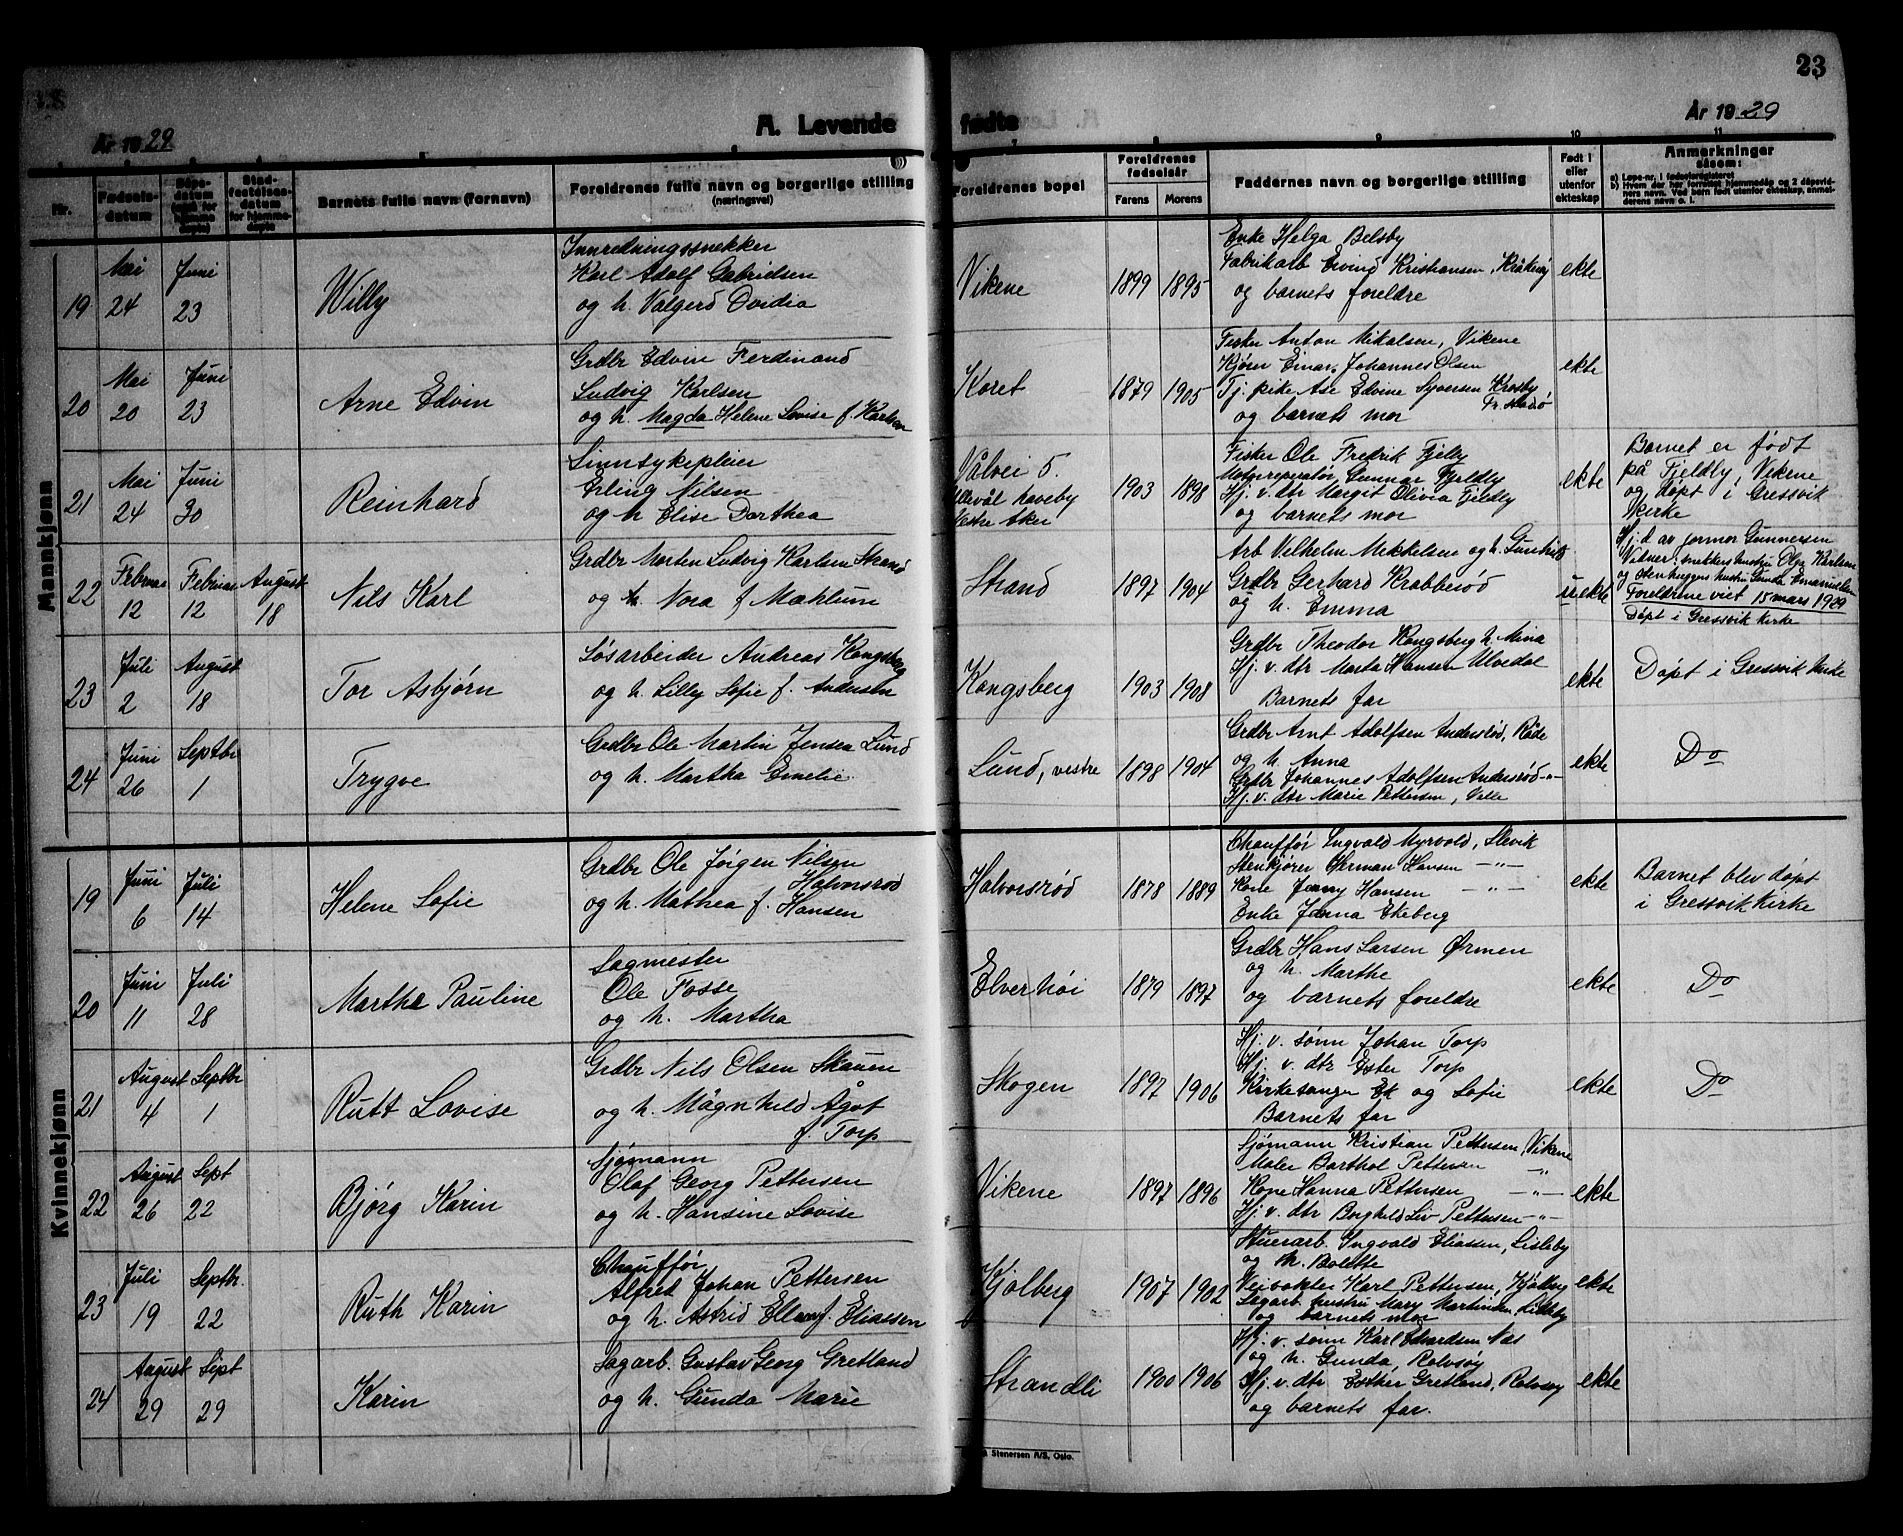 23
År 1929
A. Levende fødte
År 1929
Nr.
Fødsels-
datum
Barnets fulle navn (fornavn)
Foreldrenes fulle navn og borgerlige stilling
(næringsvei)
Foreldrenes bopel
Foreldrenes
fødselsår
Farens
Morens
Faddernes navn og borgerlige stilling
Født i
eller
utenfor
ekteskap
Anmerkninger
såsom:
a) Løpe-nr. i fødselsregisteret
Mannkjønn
19
Mai
24
Juni
23
Willy
Innredningssnekker
Karl Adolf Gabrielsen
og h. Valgerd Ovidia
Vikene
1899
1895
Enke Helga Belsby
Fabrikarb Eivind Kristiansen, Kråkerøy
og barnets foreldre
ekte
20
Mai
20
Juni
23
Arne Edvin
Grdbr Edvin Ferdinand
Ludvig Karlsen
og h. Magda Helene Lovise f. Karlsen
Koret
1879
1905
Fisker Anton Mikalsen, Vikene
Kjører Einar Johannes Olsen
Tj. pike Åse Edvine Syversen Krosby
og barnets mor
ekte
21
Mai
24
Juni
30
Reinhard
Sinnsykepleier
Erling Nilsen
og h Elise Dorthea
Vålvei 5.
Ullevål haveby
Vestre Aker
1903
1898
Fisker Ole Fredrik Fjelby
Motorreperatør Gunnar Fjeldby
Hj. v. dtr Margit Olivia Fjeldby
og barnets mor
ekte
Barnet er født
på Fjeldby Vikene
og døpt i Gressvik
kirke
22
Februar
12
Februar
12
August
18
Nils Karl
Grdbr Morten Ludvig Karlsen Strand
og h. Nora f. Mæhlum
Strand
1897
1904
Arb Vilhelm Mikkelsen og h. Gunhild
Grdbr Gerhard Krabberød
og h. Emma
uekte
Hj. d av jormor Gunnersen
Vitner: smeddens hustru Olga Karlsen
og stenhuggers hustru Gunda Emanuelsen
Foreldrene viet 15 mars 1929
Døpt i Gressvik Kirke
23
Juli
2
August
18
Tor Asbjørn
Løsarbeider Andreas Kongsberg
og h. Lilly Sofie f. Andersen
Kongsberg
1903
1908
Grdbr Theodor Kongsberg h. Mina
Hj. v. dtr Marta Hansen Ulvedal
Barnets far
ekte
Døpt i Gressvik kirke
24
Juni
26
Septbr
1
Trygve
Grdbr Ole Martin Jensen Lund
og h. Martha Emelie
Lund, vestre
1898
1904
Grdbr Arnt Adolfsen Andersrød, Råde
og h. Anna
Grdbr Johannes Adolfsen Andersrød -"-
Hj. v. dtr Marie Pettersen, Velle
ekte
Do
Kvinnekjønn
19
Juni
6
Juli
14
Helene Sofie
Grdbr Ole Jörgen Nilsen
Halvorsrød
og h. Mathea f. Hansen
Halvorsrød
1878
1889
Chauffør Ingvald Myrvold, Slevik
Stenkjører Herman Hansen -"-
Kone Jenny Hansen -"-
Enke Janna Ekeberg
ekte
Barnet blev døpt
i Gressvik Kirke
20
Juni
11
Juli
28
Martha Pauline
Sagmester
Ole Fosse
og h. Martha
Elverhøi
1879
1897
Grdbr Hans Larsen Ørmen
og h. Marthe
og barnets foreldre
ekte
Do
21
August
4
Septbr
1
Rutt Lovise
Grdbr Nils Olsen Skauen
og h. Magnhild Ågot
f. Torp
Skogen
1897
1906
Hj. v. sønn Johan Torp
Hj. v. dtr Ester Torp
Kirkesanger Ek og Sofie
Barnets far
ekte
Do
22
August
26
Sept
22
Bjørg Karin
Sjømann
Olaf Georg Pettersen
og h. Hansine Lovise
Vikene
1897
1896
Sjømann Kristian Pettersen, Vikene
Maler Barthol Pettersen -"-
Kone Hanna Pettersen -"-
Hj. v. dtr Borghild Liv Pettersen -"-
ekte
23
Juli
19
Septbr.
22
Ruth Karin
Chauffør
Alfred Johan Pettersen
og h. Astrid Ellen f. Eliassen
Kjølberg
1907
1902
Stuerarb. Ingvald Eliassen, Lisleby
og h. Bolette
Veivokter Karl Pettersen, Kjølberg
Sagarb. hustru Mary Martinsen, Lisleby
og barnets mor
ekte
24
August
29
Sept
29
Karin
Sagarb. Gustav Georg Gretland
og h. Gunda Marie
Strandli
1900
1906
Hj. v. sønn Karl Edvardsen Næs
og h. Gunda, Rolvsøy
Hj. v. dtr Esther Gretland, Rolvsøy
og barnets far.
ekte
Stenersen A/S, Oslo.